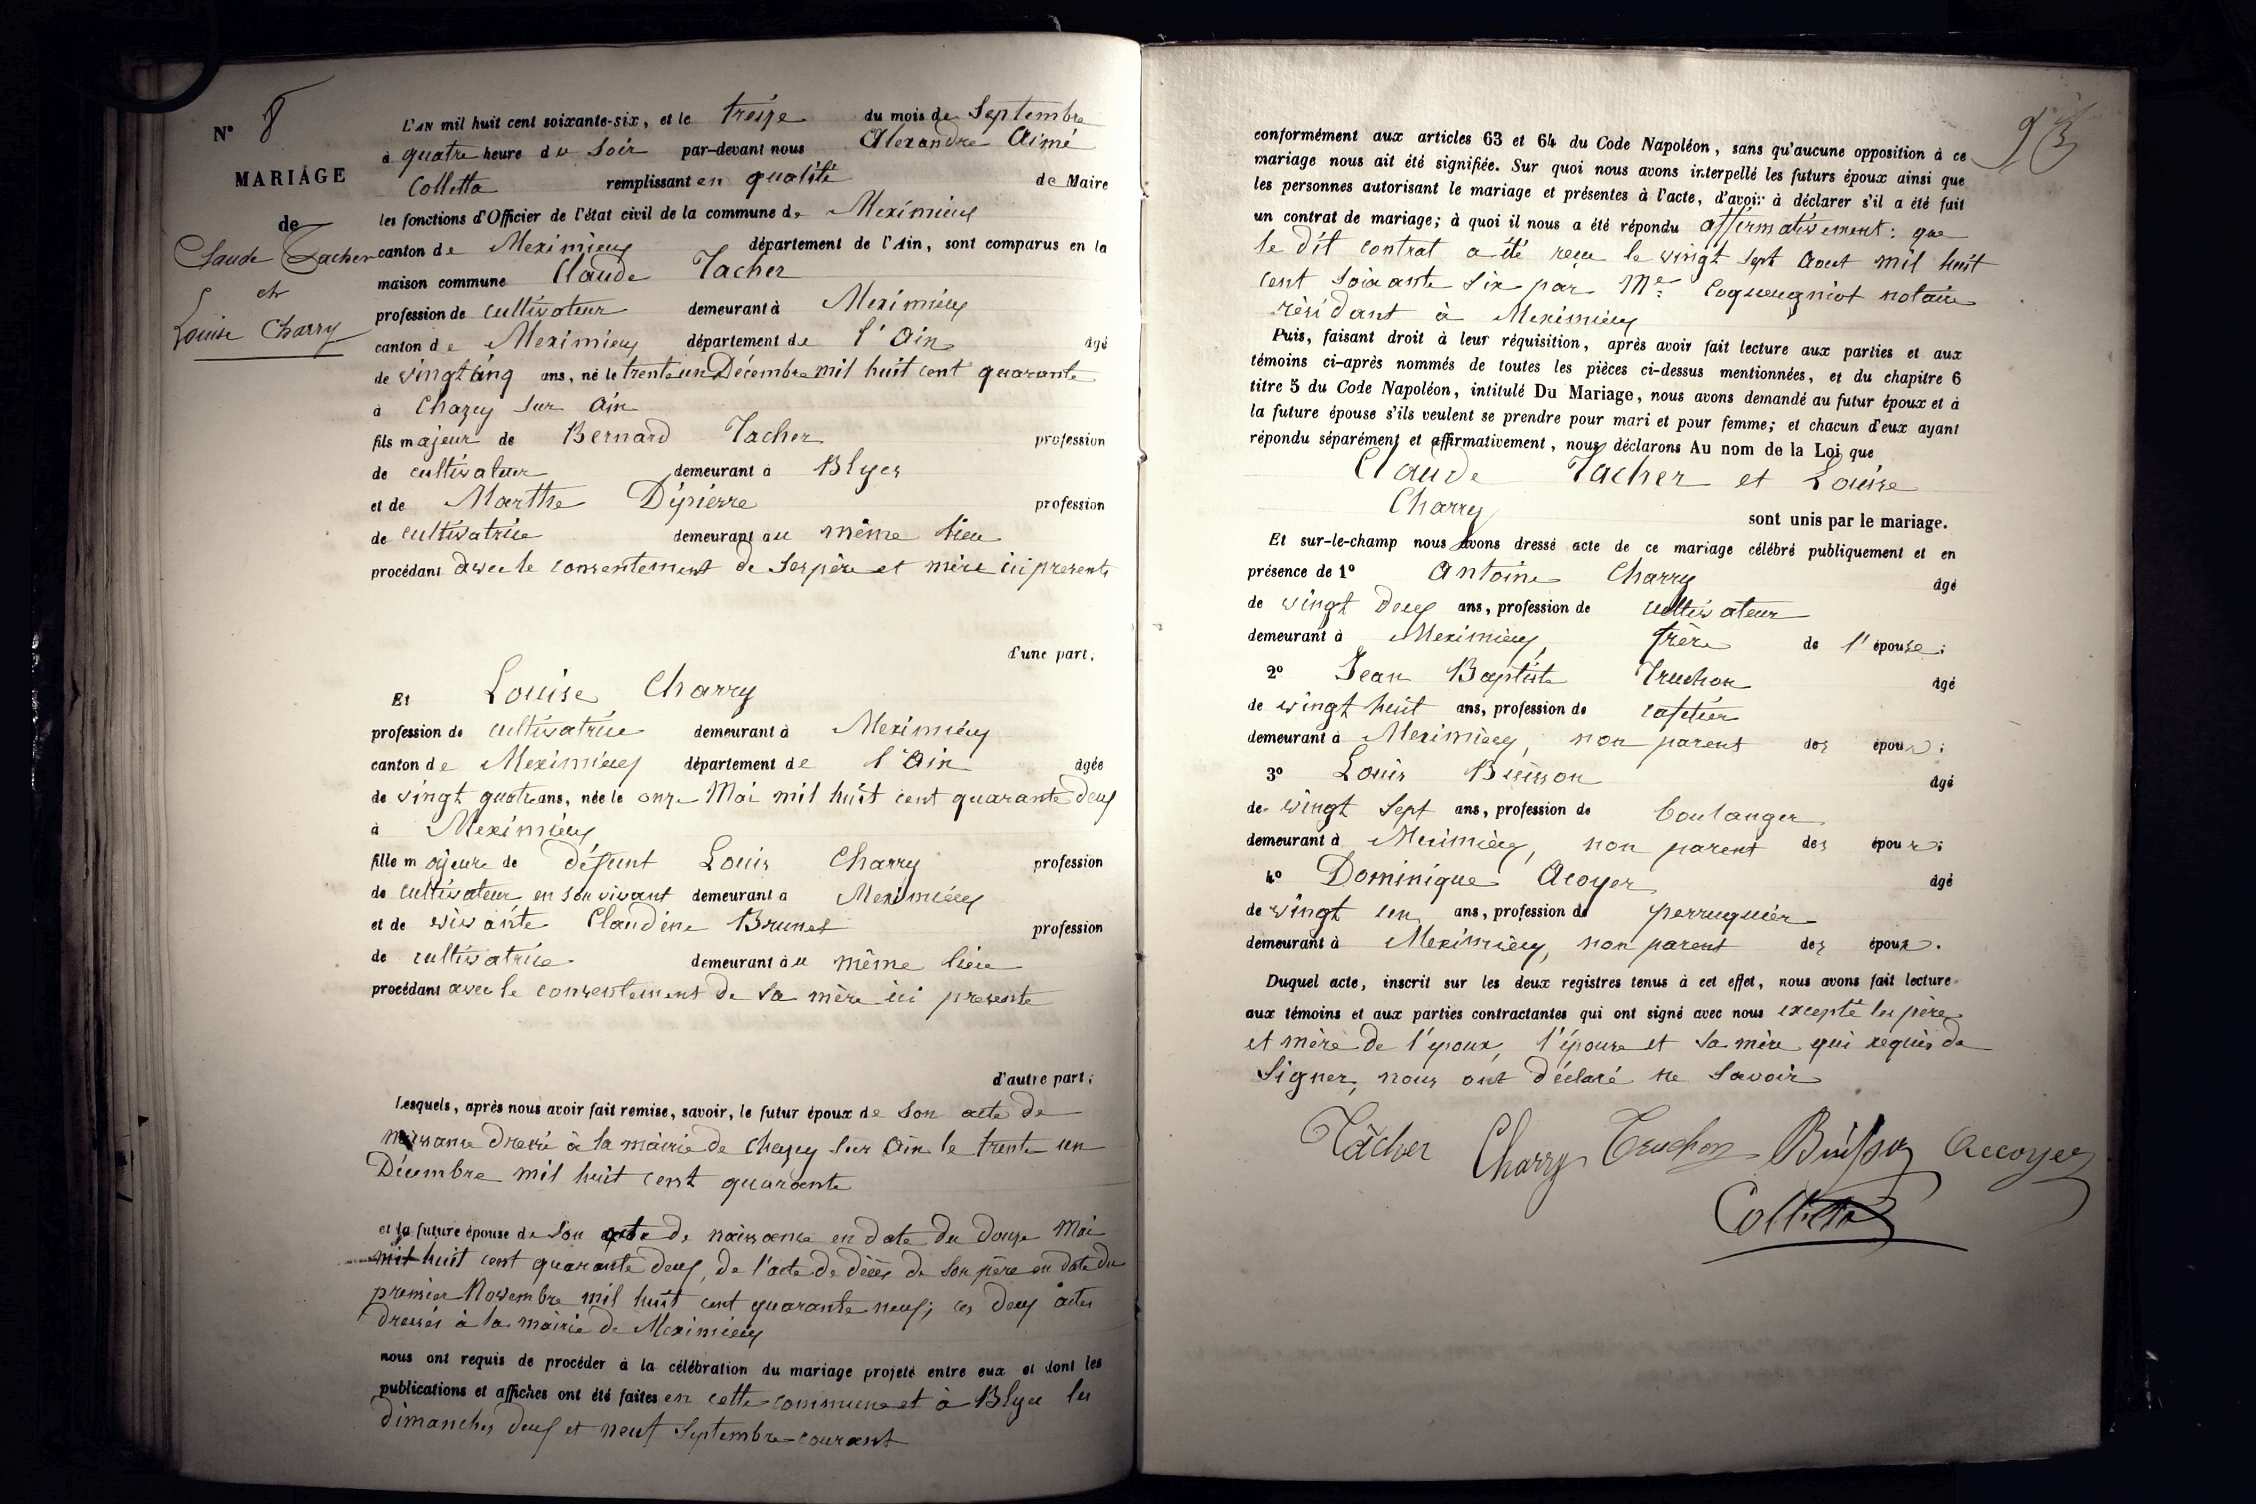 N° 8
MARIAGE
de
Claude Tacher
et
Louise Charry
L'AN mil huit cent soixante-six, et le treize du mois de Septembre
à quatre heure du Soir par-devant nous Alexandre Aimé
Colletta remplissant en qualité de Maire
les fonctions d'Officier de l'état civil de la commune de Meximieux
canton de Meximieux département de l'Ain, sont comparus en la
maison commune Claude Tacher
profession de cultivateur demeurant à Meximieux
canton de Meximieux département de l'Ain âgé
de vingt cinq ans, né le trente un Décembre mil huit cent quarante
à Chazey sur Ain
fils majeur de Bernard Tacher profession
de cultivateur demeurant à Blyes
et de Marthe Dépierre profession
de cultivatrice demeurant au même lieu
procédant avec le consentement de Ses père et mère ici presents
d'une part;
Et Louise Charry
profession de cultivatrice demeurant à Meximieux
canton de Meximieux département de l'Ain âgée
de vingt quatre ans, née le onze Mai mil huit cent quarante deux
à Meximieux
fille majeure de défunt Louis Charry profession
de cultivateur en son vivant demeurant à Meximieux
et de vivante Claudine Brunet profession
de cultivatrice demeurant au même lieu
procédant avec le consentement de sa mère ici presente
d'autre part;
Lesquels, après nous avoir fait remise, savoir, le futur époux de Son acte de
naissance dressé à la mairie de Chazey sur Ain le trente un
Décembre mil huit cent quarante
et la future épouse de Son acte de naissance en date du douze Mai
mil huit cent quarante deux, de l'acte de décès de Son père en date du
premier Novembre mil huit cent quarante neuf; ces deux actes
dressés à la mairie de Meximieux
nous ont requis de procéder à la célébration du mariage projeté entre eux et dont les
publications et affiches ont été faites en cette commune et à Blyes les
dimanches deux et neuf Septembre courant
conformément aux articles 63 et 64 du Code Napoléon, sans qu'aucune opposition à ce
mariage nous ait été signifiée. Sur quoi nous avons interpellé les futurs époux ainsi que
les personnes autorisant le mariage et présentes à l'acte, d'avoir à déclarer s'il a été fait
un contrat de mariage; à quoi il nous a été répondu affirmativement: que
le dit contrat a été reçu le vingt sept Aout mil huit
cent soixante six par Me Coqueugniot notaire
résidant à Meximieux
Puis, faisant droit à leur réquisition, après avoir fait lecture aux parties et aux
témoins ci-après nommés de toutes les pièces ci-dessus mentionnées, et du chapitre 6
titre 5 du Code Napoléon, intitulé Du Mariage, nous avons demandé au futur époux et à
la future épouse s'ils veulent se prendre pour mari et pour femme; et chacun d'eux ayant
répondu séparément et affirmativement, nous déclarons Au nom de la Loi que
Claude Tacher et Louise
Charry
sont unis par le mariage.
Et sur-le-champ nous avons dressé acte de ce mariage célébré publiquement et en
présence de 1° Antoine Charry âgé
de vingt deux ans, profession de cultivateur
demeurant à Meximieux, frère de l'épouse;
2° Jean Baptiste Truchon âgé
de vingt huit ans, profession de cafetier
demeurant à Meximieux, non parent des époux;
3° Louis Buisson âgé
de vingt Sept ans, profession de boulanger
demeurant à Meximieux, non parent des époux;
4° Dominique Acoyer âgé
de vingt un ans, profession de perruquier
demeurant à Meximieux, non parent des époux.
Duquel acte, inscrit sur les deux registres tenus à cet effet, nous avons fait lecture
aux témoins et aux parties contractantes qui ont signé avec nous excepté les père
et mère de l'époux, l'épouse et sa mère qui requis de
Signer, nous ont déclaré ne Savoir
Tâcher Charry Truchon Buisson Accoyer
Colletta